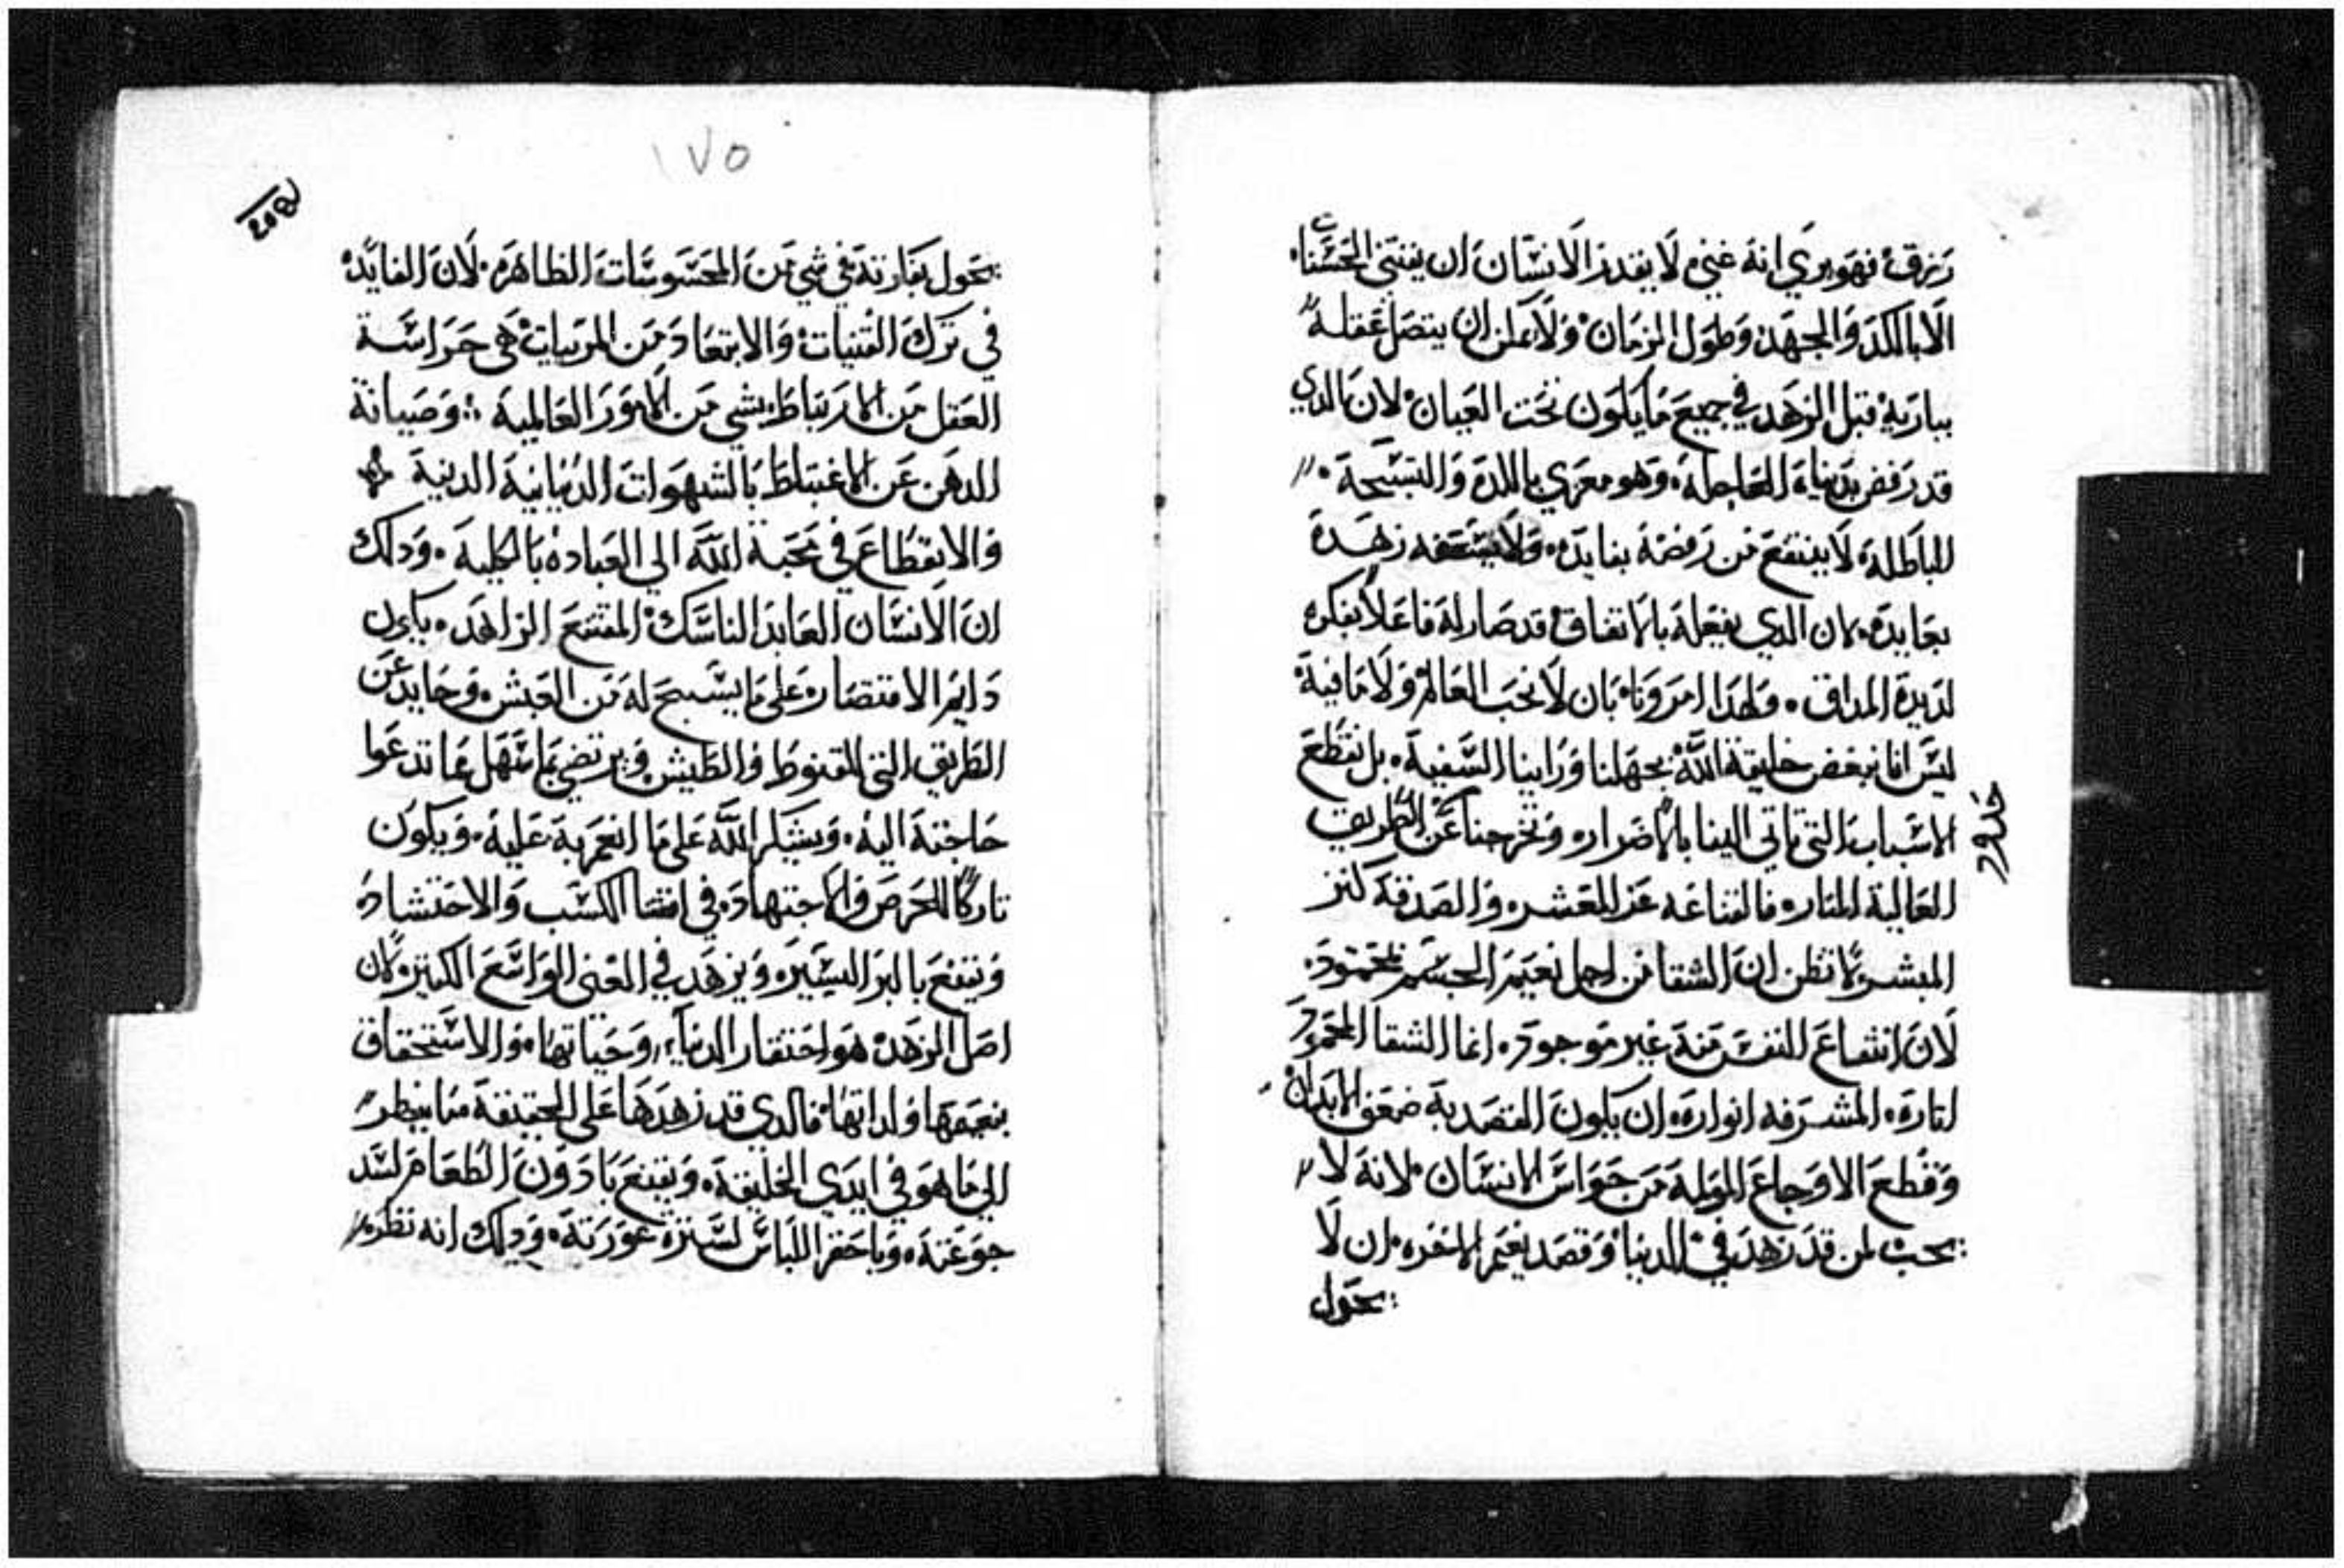 رزق فهو يري انه غني لا يقدر الانسان ان يقتني الحسنات
الا بالكد والجهد وطول الزمان ولا يمكن ان يتصل عقله
بباريه قبل الزهد في جميع ما يكون تحت العيان لان الدي
قد رفض دنياه العاجله وهو معري باللده والتسبحة
الباطله لا ينتفع من رفضه بفايده ولا زهده
بعايده لان الدي يفعله بالاتفاق قد صار له فاعلا بفكره
لديدة المداق ولهدا امرونا بان لا نحب العالم ولا ما فيه
ليس اننا نبغض خليقة الله بجهلنا وراينا السفيه بل نقطع
الاسباب التي تاتي الينا بالاضرار وتخرجنا عن الطريق
حدود
العالية المناره فالقناعه عز المعشر والصدقه كنز
المبشر لا تظن ان الشقا من اجل نعيم الجسم محمود
لان انتفاع النفس منه غير موجود انما الشقا المحمود
اتاره المشرفه انواره ان يكون القصد به ضعف الابدان
وقطع الاوجاع المولمة من حواس الانسان لانه لا
يجب لمن قد زهد في الدنيا وقصد نعيم الاخره ان لا
يحول
١٧٥
208
يحول بقارته في شي من المحسوسات الظاهره لان الفايده
في ترك القنيات والابتعاد من المربيات هي حراسة
العقل من الارتباط بشي من الامور العالمية وصيانة
الدهن عن الاغتباط بالشهوات الدنيانية الدنية
والانقطاع في محبة الله الي العباده بالكلية ودلك
ان الانسان العابد الناسك المقتنع الزاهد يكون
دايم الاقتصار علي ما يسبح له من العيش وحايد عن
الطريق التي للقنوط والطيش ويرتضي بما سهل مما تدعوا
حاجته اليه ويشكر الله علي ما انعم به عليه ويكون
تاركا للحرص والاجتهاد في اقتنا الكسب والاحتشاد
ويقنع بالبر اليسير ويزهد في الغني الواسع الكتير لان
اصل الزهد هو احتقار الدنيا وحياتها والاستحقاق
بنعيمها ولداتها فالدي قد زهدها علي الحقيقة ما ينظر
الي ما هو في ايدي الخليقه ويقنع بادون الطعام لسد
جوعته وباحقر اللباس لستره عورته ودلك انه نظر